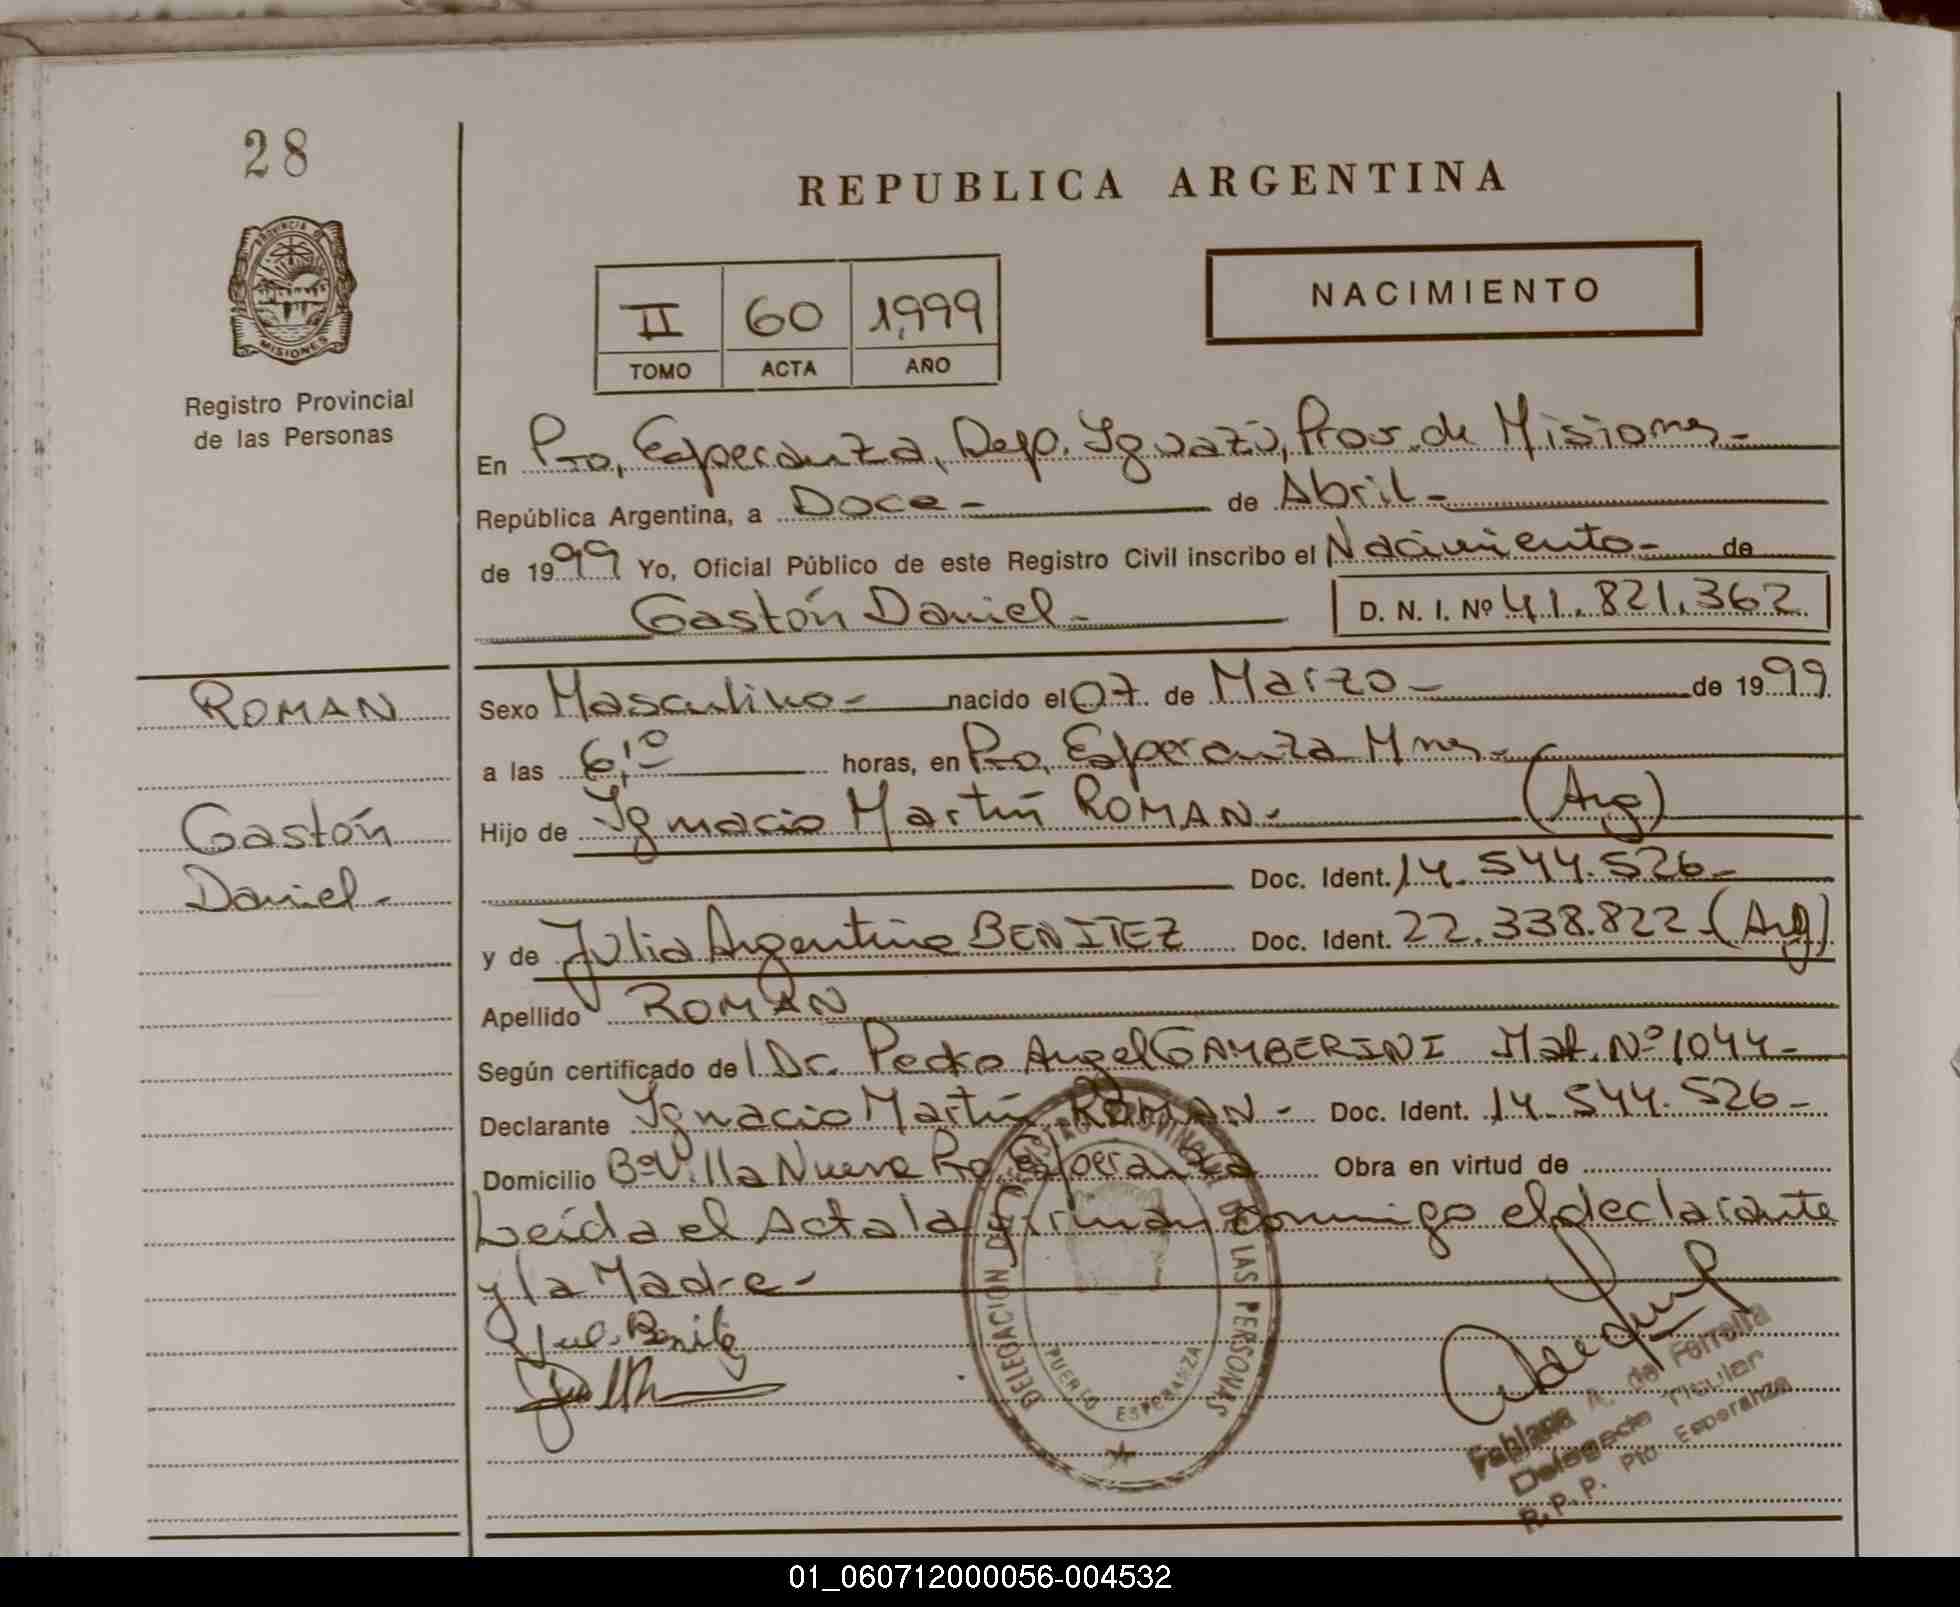 28
REPUBLICA ARGENTINA
PROVINCIA DE
MISIONES
Registro Provincial
de las Personas
II 60 1,999
TOMO ACTA AÑO
NACIMIENTO
En Pto, Esperanza, Dep. Iguazú, Prov. de Misiones-
República Argentina, a Doce- de Abril-
de 1999 Yo, Oficial Público de este Registro Civil inscribo el Nacimiento- de
Gastón Daniel- D. N. I. Nº 41.821.362
ROMAN
Gastón
Daniel-
Sexo Masculino- nacido el 07 de Marzo- de 1999
a las 6,10 horas, en Pto, Esperanza Mnes-
Hijo de Ignacio Martín ROMAN- (Arg)
Doc. Ident. 14.544.526-
y de Julia Argentina BENITEZ Doc. Ident. 22.338.822-(Arg)
Apellido ROMAN
Según certificado del Dr. Pedro Angel GAMBERINI Mat. Nº 1044-
Declarante Ignacio Martín ROMAN- Doc. Ident. 14.544.526-
Domicilio Bº Villa Nueva Pto Esperanza Obra en virtud de
Leída el Acta la firman conmigo el declarante
y la Madre-
Jul. Benite
DELEGACION DEL REGISTRO PROVINCIAL DE LAS PERSONAS
PUERTO ESPERANZA
Fabiana A. de Ferreira
Delegada Titular
R.P.P. Pto Esperanza
01_060712000056-004532